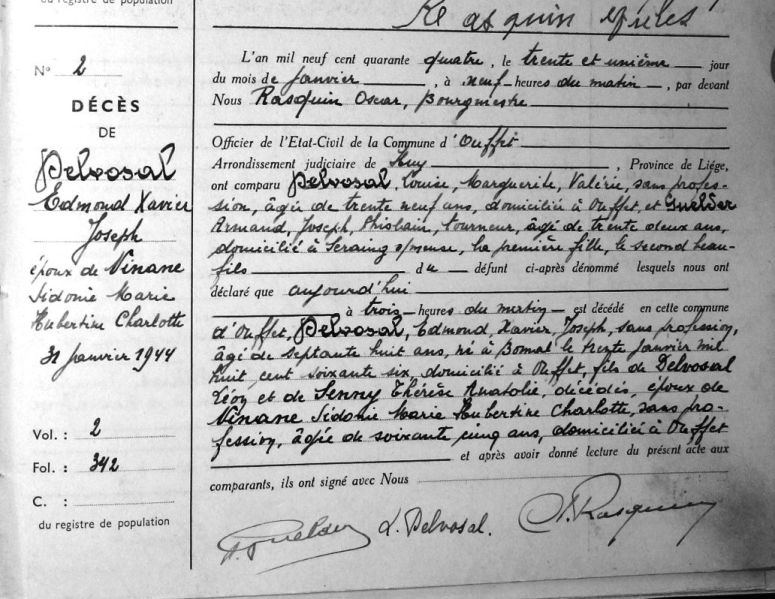 du registre de population
Rasquin
N° 2
DÉCÈS
DE
Delvosal
Edmond Xavier
Joseph
époux de Vinane
Sidonie Marie
Hubertine Charlotte
31 janvier 1944
Vol. : 2
Fol. : 342
C. :
du registre de population
L'an mil neuf cent quarante quatre, le trente et unième jour
du mois de Janvier, à neuf heures du matin, par devant
Nous Rasquin Oscar, Bourgmestre
Officier de l'Etat-Civil de la Commune d'Ouffet
Arrondissement judiciaire de Huy, Province de Liége,
ont comparu Delvosal, Louise, Marguerite, Valérie, sans profes-
sion, âgée de trente neuf ans, domiciliée à Ouffet, et Guelder
Armand, Joseph, Ghislain, tourneur, âgé de trente deux ans,
domicilié à Seraing s/meuse, la première fille, le second beau-
fils du défunt ci-après dénommé lesquels nous ont
déclaré que aujourd'hui
à trois heures du matin est décédé en cette commune
d'Ouffet, Delvosal, Edmond Xavier, Joseph, sans profession,
âgé de septante huit ans, né à Bomal le trente janvier mil
huit cent soixante six, domicilié à Ouffet, fils de Delvosal
Léon et de Senny Thérèse Anatolie, décédés, époux de
Vinane Sidonie Marie Hubertine Charlotte, sans pro-
fession, âgée de soixante cinq ans, domiciliée à Ouffet
et après avoir donné lecture du présent acte aux
comparants, ils ont signé avec Nous
A. Guelder L. Delvosal. O. Rasquin